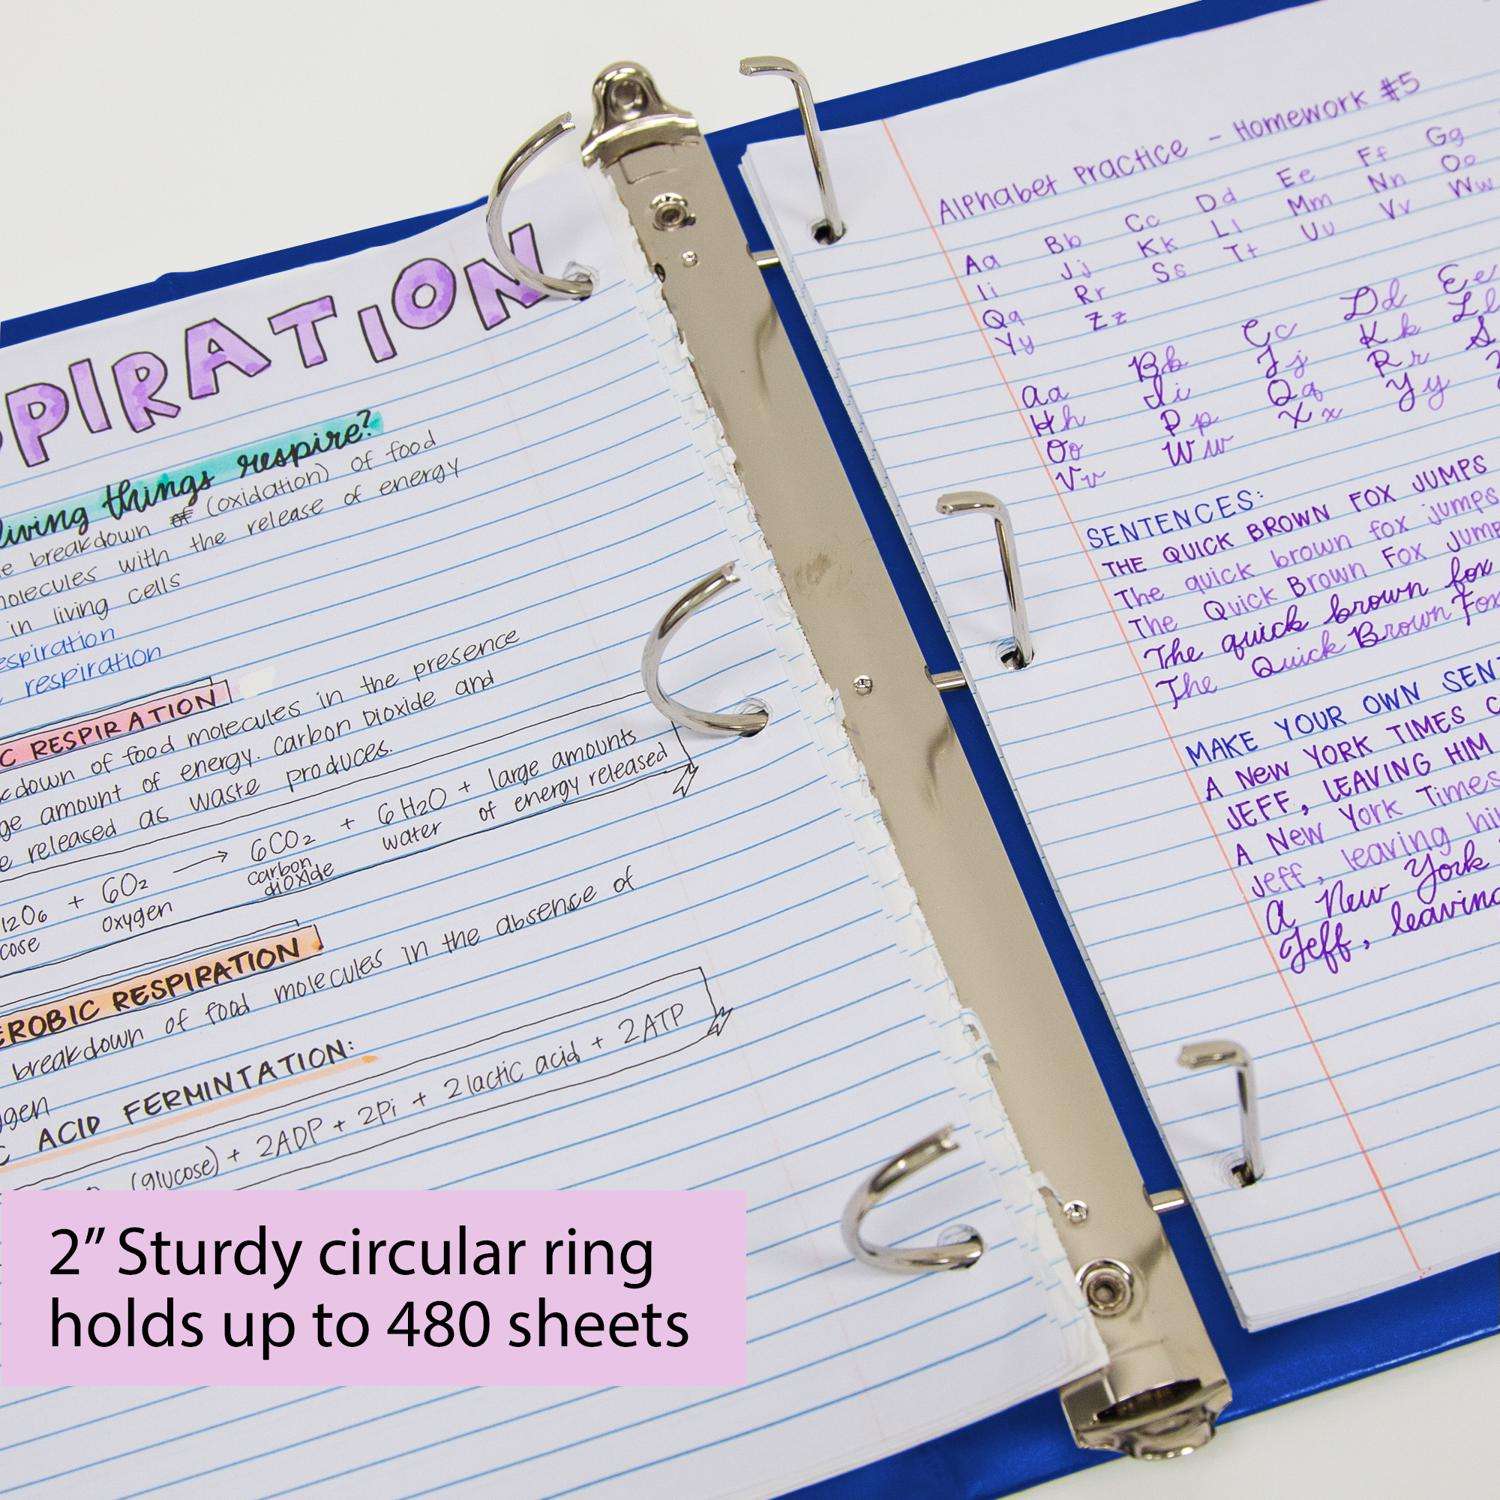 PIRATION
living things respire?
e breakdown of (oxidation) of food
molecules with the release of energy
in living cells
espiration
respiration
C RESPIRATION
kdown of food molecules in the presence
ge amount of energy. Carbon Dioxide and
e released as waste produces.
12O6 + 6O2 → 6CO2 + 6H2O + large amounts
cose oxygen carbon dioxide water of energy released
EROBIC RESPIRATION
breakdown of food molecules in the absence of
gen
C ACID FERMINTATION:
(glucose) + 2ADP + 2Pi + 2lactic acid + 2ATP
Alphabet Practice - Homework #5
Aa Bb Cc Dd Ee Ff Gg
Ii Jj Kk Ll Mm Nn Oo
Qq Rr Ss Tt Uu Vv Ww
Yy Zz
Aa Bb Cc Dd Ee
Hh Ii Jj Kk Ll
Oo Pp Qq Rr S
Vv Ww Xx Yy
SENTENCES:
THE QUICK BROWN FOX JUMPS
The quick brown fox jumps
The Quick Brown Fox Jump
The quick brown fox
The Quick Brown Fox
MAKE YOUR OWN SEN
A NEW YORK TIMES C
JEFF, LEAVING HIM
A New York Times
Jeff, leaving hi
A New York
Jeff, leaving
2” Sturdy circular ring
holds up to 480 sheets